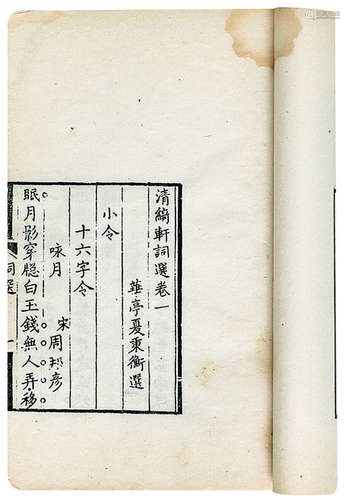 清綺軒詞選卷一
華亭夏秉衡選
小令
十六字令
咏月　宋周邦彥
眠月影穿牕白玉錢無人弄移
詞選　一